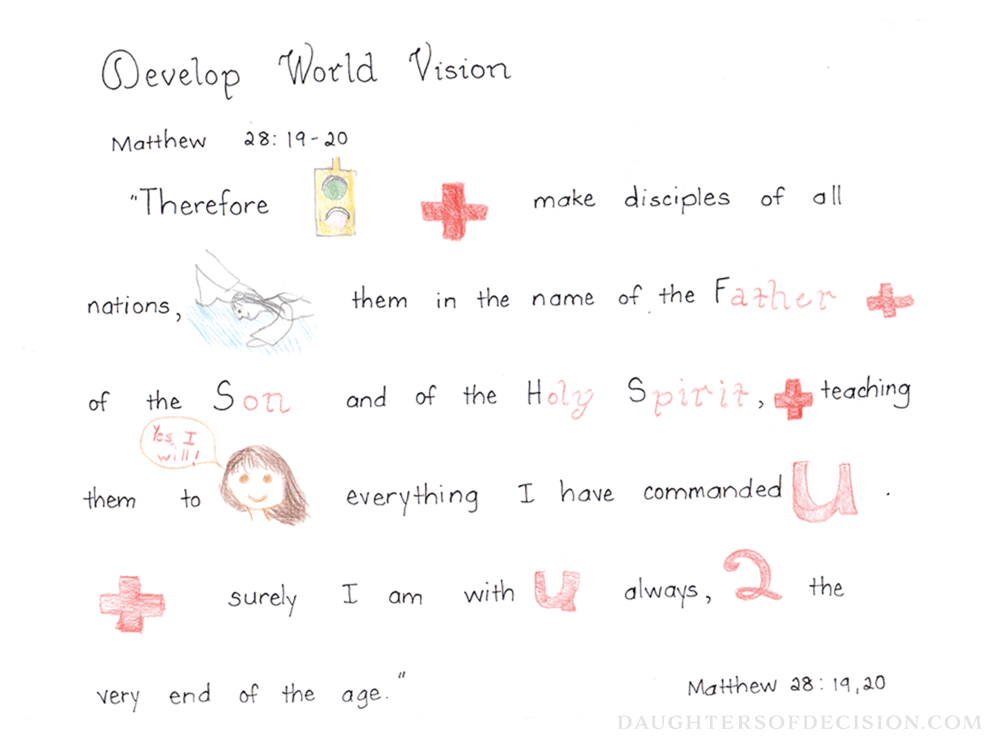 Develop World Vision
Matthew 28:19-20
"Therefore make disciples of all
nations, them in the name of the Father
of the Son and of the Holy Spirit, teaching
Yes, I
will!
them to everything I have commanded u .
surely I am with u always, 2 the
very end of the age."
Matthew 28:19,20
DAUGHTERSOFDECISION.COM